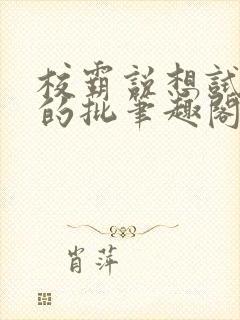 校霸说想试
的批笔趣阁
肖萍